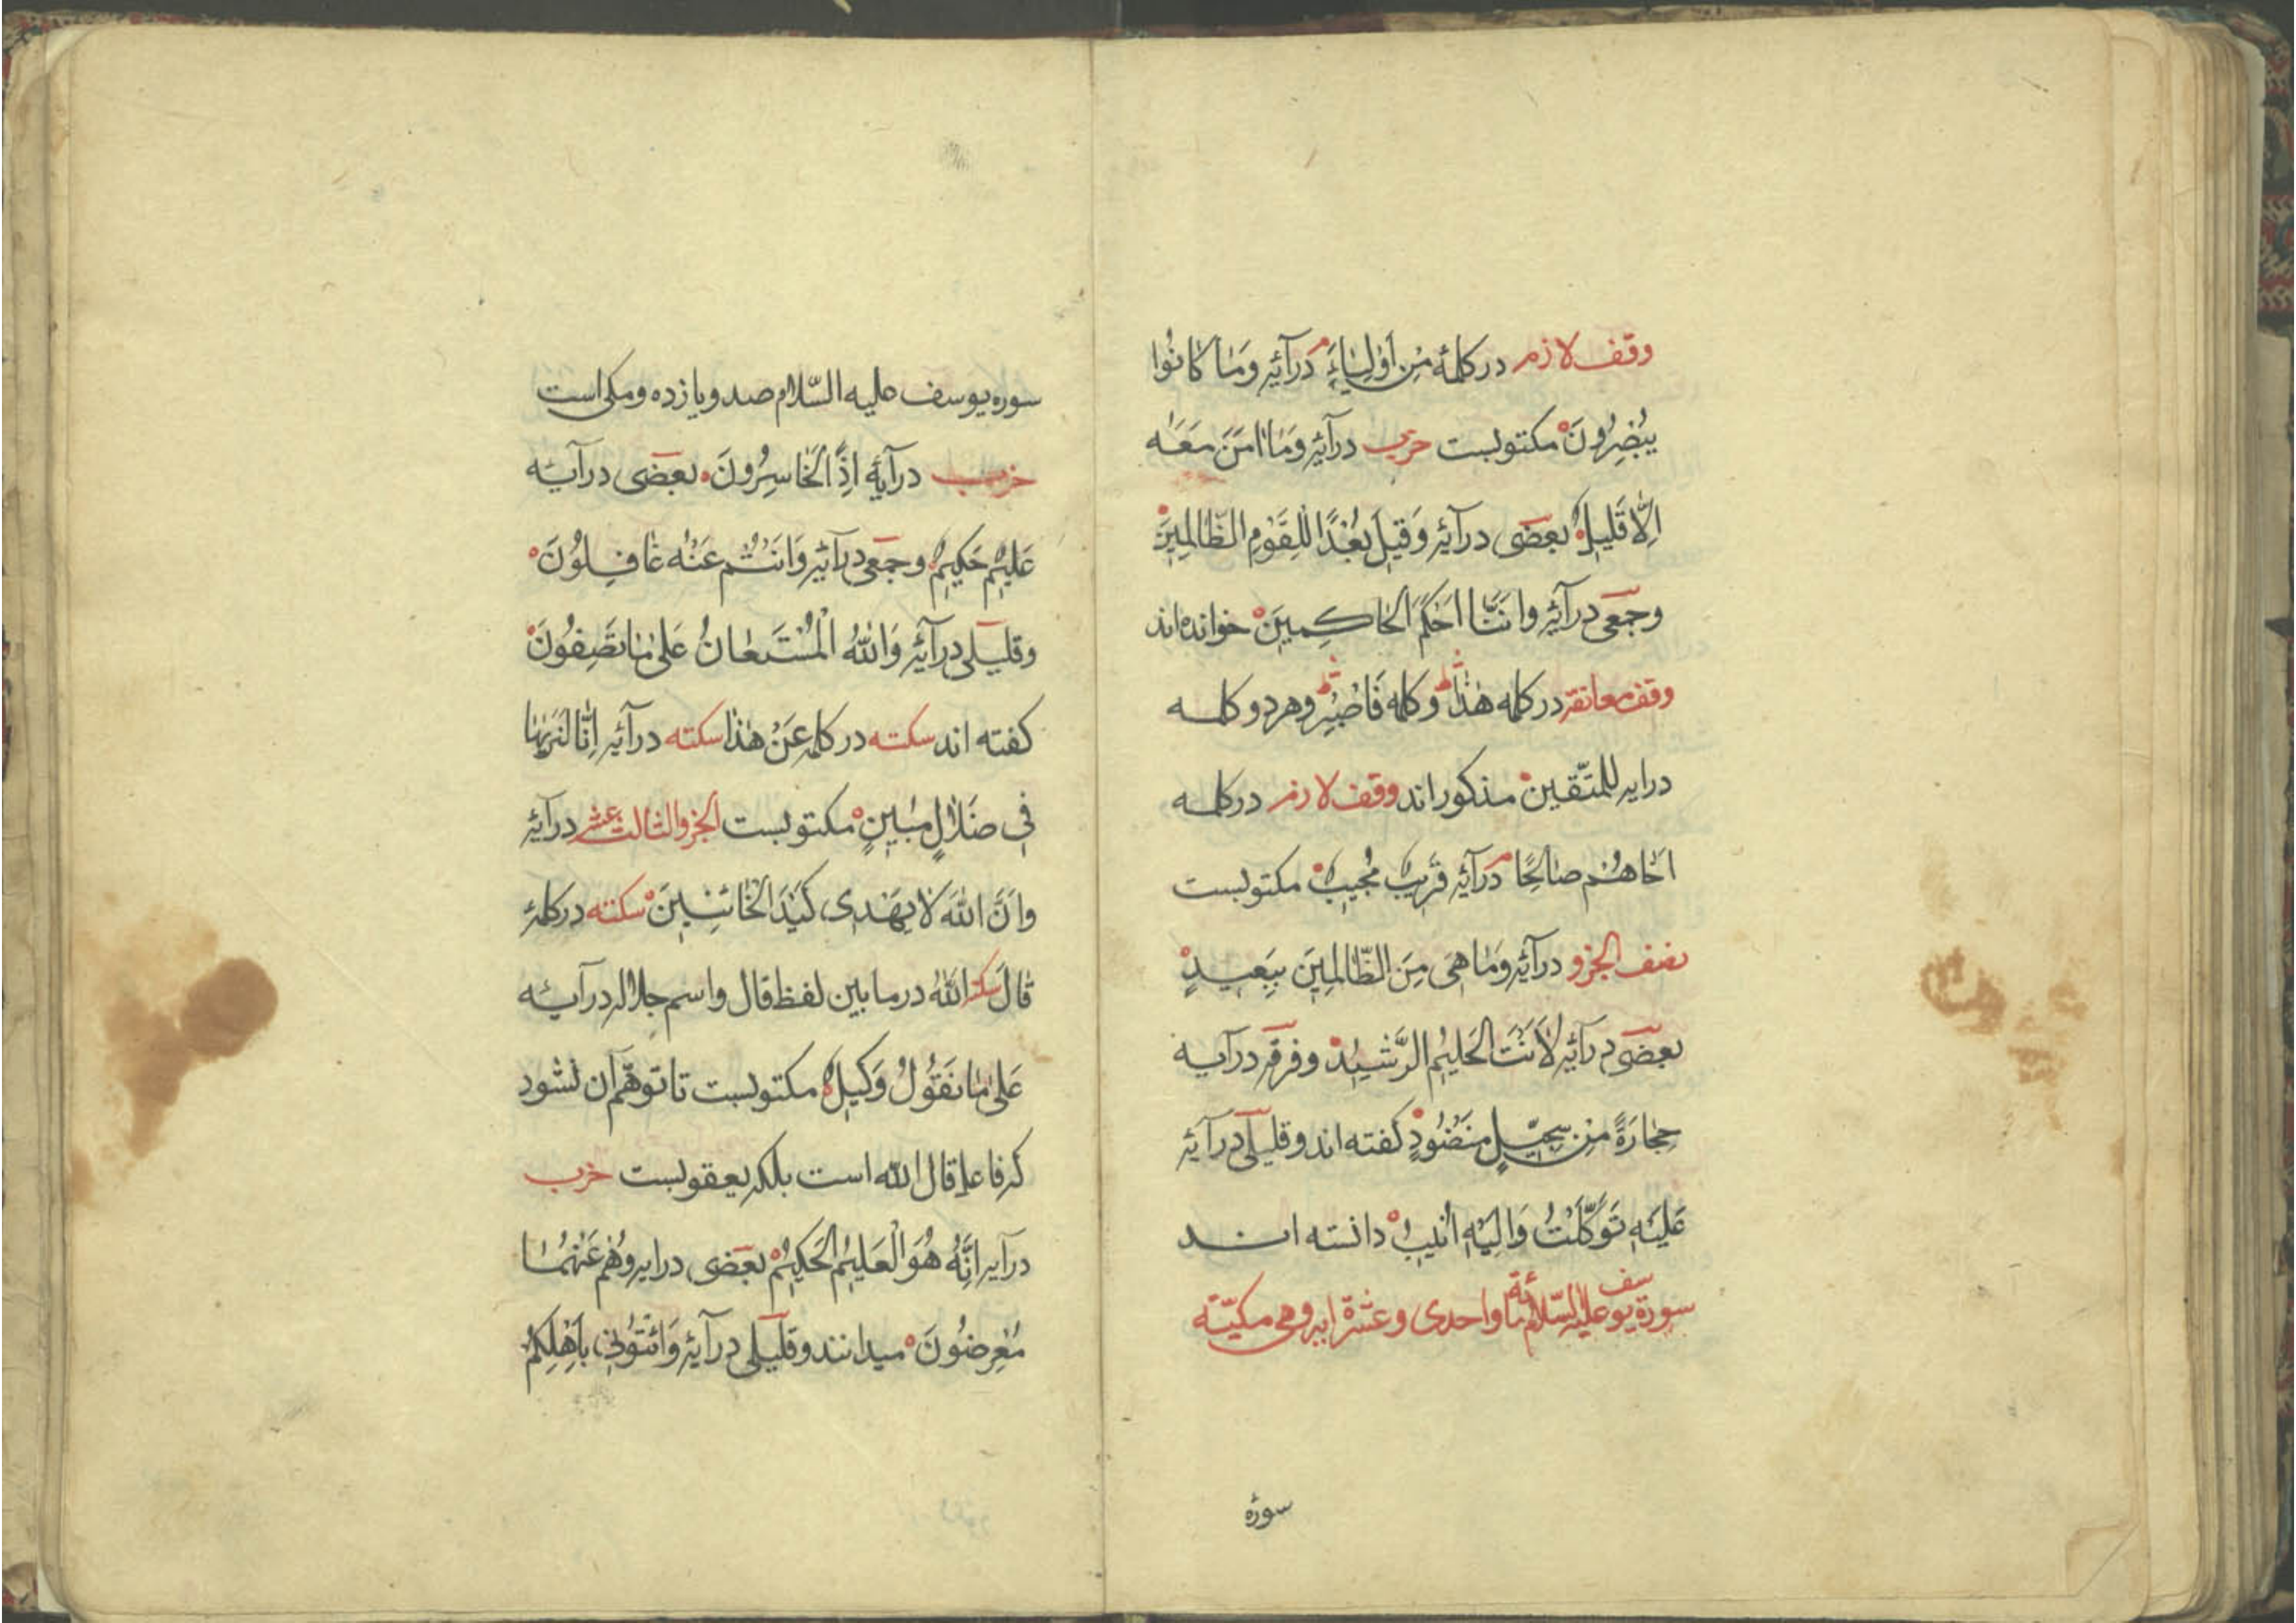 وقف لازم در كلمهٔ مِنْ اَوْلِيَاءَ م درآيهٔ وَمَا كَانُوا
يُبْصِرُونَ مكتوبست حزب درآيهٔ وَمَا اٰمَنَ مَعَهٗ
اِلَّا قَلِيلٌ بعضى درآيهٔ وَقِيلَ بُعْدًا لِلْقَوْمِ الظَّالِمِينَ
وجمعى درآيهٔ وانتَ اَحْكَمُ الْحَاكِمِينَ خوانده اند
وقف معانقه در كلمه هٰذَا ۛ وكلمه فَاصْبِرْ ۛ وهردو كلمه
درايه للمتّقين مذكوراند وقف لازم در كلمه
اَخَاهُمْ صَالِحًا م درآيهٔ قَرِيبٌ مُجِيبٌ مكتوبست
نصف الجزو درآيهٔ وَمَا هِىَ مِنَ الظَّالِمِينَ بِبَعِيدٍ
بعضى درآيهٔ لَاَنْتَ الْحَلِيمُ الرَّشِيدُ وفرقه درآيه
حِجَارَةً مِنْ سِجِّيلٍ مَنْضُودٍ كفته اند وقليلى درآيهٔ
عَلَيْهِ تَوَكَّلْتُ وَاِلَيْهِ اُنِيبُ دانسته اند
سورة يوسف عليه السّلام مائة واحدى وعشرة ايه وهى مكيّة
سورهٔ
سوره يوسف عليه السّلام صد ويازده ومكى است
حزب درآيهٔ اِذًا لَخَاسِرُونَ بعضى درآيه
عَلِيمٌ حَكِيمٌ وجمعى درآيهٔ وَاَنْتُمْ عَنْهُ غَافِلُونَ
وقليلى درآيهٔ وَاللّٰهُ الْمُسْتَعَانُ عَلٰى مَا تَصِفُونَ
كفته اند سكته در كلمه عَنْ هٰذَا سكته درآيهٔ اِنَّا لَنَرٰيهَا
فِى ضَلَالٍ مُبِينٍ مكتوبست الجزو الثالث عشر درآيهٔ
وَاَنَّ اللّٰهَ لَا يَهْدِى كَيْدَ الْخَائِنِينَ سكته در كلمهٔ
قَالَ سكته اللّٰهُ در مابين لفظ قال واسم جلاله درآيه
عَلٰى مَا نَقُولُ وَكِيلٌ مكتوبست تا توهّم آن نشود
كه فاعل قال اللّٰه است بلكه يعقوبست حزب
درآيه اِنَّهُ هُوَ الْعَلِيمُ الْحَكِيمُ بعضى درايه وَهُمْ عَنْهَا
مُعْرِضُونَ ميدانند وقليلى درآيهٔ وَائْتُونِى بِاَهْلِكُمْ